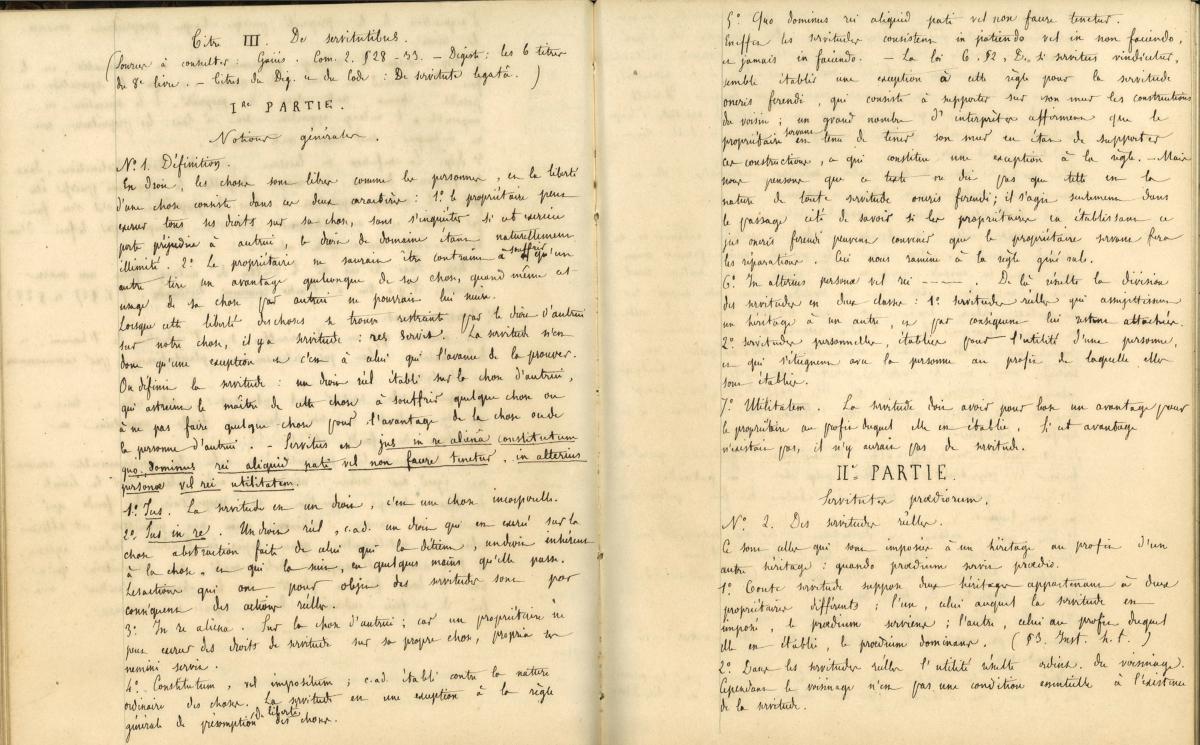 Titre III. De servitutibus.
(Sources à consulter : Gaius. Com. 2. § 28-33. – Digeste : les 6 titres
du 8e livre. – Titres du Dig. et du Code : De servitute legatâ. )
Ire PARTIE.
Notions générales.
No 1. Définition.
En Droit, les choses sont libres comme les personnes, et la liberté
d'une chose consiste dans ces deux caractères : 1o le propriétaire peut
exercer tous ses droits sur sa chose, sans s'inquiéter si cet exercice
porte préjudice à autrui, le droit de domaine étant naturellement
illimité. 2o Le propriétaire ne saurait être contraint à souffrir qu'un
autre tire un avantage quelconque de sa chose, quand même cet
usage de sa chose par autrui ne pourrait lui nuire.
Lorsque cette liberté des choses se trouve restreinte par le droit d'autrui
sur notre chose, il y a servitude : res servit. La servitude n'est
donc qu'une exception et c'est à celui qui l'avance de la prouver.
On définit la servitude : un droit réel établi sur la chose d'autrui,
qui astreint le maître de cette chose à souffrir quelque chose ou
à ne pas faire quelque chose pour l'avantage de la chose ou de
la personne d'autrui. – Servitus est jus in re alienâ constitutum
quo dominus rei aliquid pati vel non facere tenetur, in alterius
personæ vel rei utilitatem.
1o Jus. La servitude est un droit, c'est une chose incorporelle.
2o Jus in re. Un droit réel, c.a.d. un droit qui est exercé sur la
chose abstraction faite de celui qui la détient, un droit inhérent
à la chose, et qui la suit, en quelques mains qu'elle passe.
Les actions qui ont pour objet des servitudes sont par
conséquent des actions réelles.
3o In re aliena. Sur la chose d'autrui ; car un propriétaire ne
peut exercer des droits de servitude sur sa propre chose, propria res
nemini servit.
4o Constitutum, vel impositum ; c.ad. établi contre la nature
ordinaire des choses. La servitude est une exception à la règle
générale de présomption de liberté des choses.
5o Quo dominus rei aliquid pati vel non facere tenetur.
En effet les servitudes consistent in patiendo vel in non faciendo,
et jamais in faciendo. – La loi 6. § 2, D. si servitus vindicetur,
semble établir une exception à cette règle pour la servitude
oneris ferendi, qui consiste à supporter sur son mur les constructions
du voisin ; un grand nombre d'interprètes affirment que le
propriétaire servant est tenu de tenir son mur en état de supporter
ces constructions, ce qui constitue une exception à la règle. – Mais
nous pensons que ce texte ne dit pas que telle est la
nature de toute servitude oneris ferendi ; il s'agit seulement dans
le passage cité de savoir si les propriétaires en établissant ce
jus oneris ferendi peuvent convenir que le propriétaire servant fera
les réparations. Ceci nous ramène à la règle générale.
6o In alterius personæ vel rei – – – –. De là résulte la division
des servitudes en deux classes : 1o servitudes réelles qui assujettissent
un héritage à un autre, et par conséquent lui restent attachées.
2o servitudes personnelles, établies pour l'utilité d'une personne,
et qui s'éteignent avec la personne au profit de laquelle elles
sont établies.
7o Utilitatem. La servitude doit avoir pour base un avantage pour
le propriétaire au profit duquel elle est établie. Si cet avantage
n'existait pas, il n'y aurait pas de servitude.
IIe PARTIE.
Servitutes prædiorum.
No 2. Des servitudes réelles.
Ce sont celles qui sont imposées à un héritage au profit d'un
autre héritage : quando prædium servit prædio.
1o Toute servitude suppose deux héritages appartenant à deux
propriétaires différents ; l'un, celui auquel la servitude est
imposée, le prædium serviens ; l'autre, celui au profit duquel
elle est établie, le prædium dominans. ( § 3. Inst. h. t. )
2o Dans les servitudes réelles l'utilité résulte ordint. du voisinage.
Cependant le voisinage n'est pas une condition essentielle à l'existence
de la servitude.